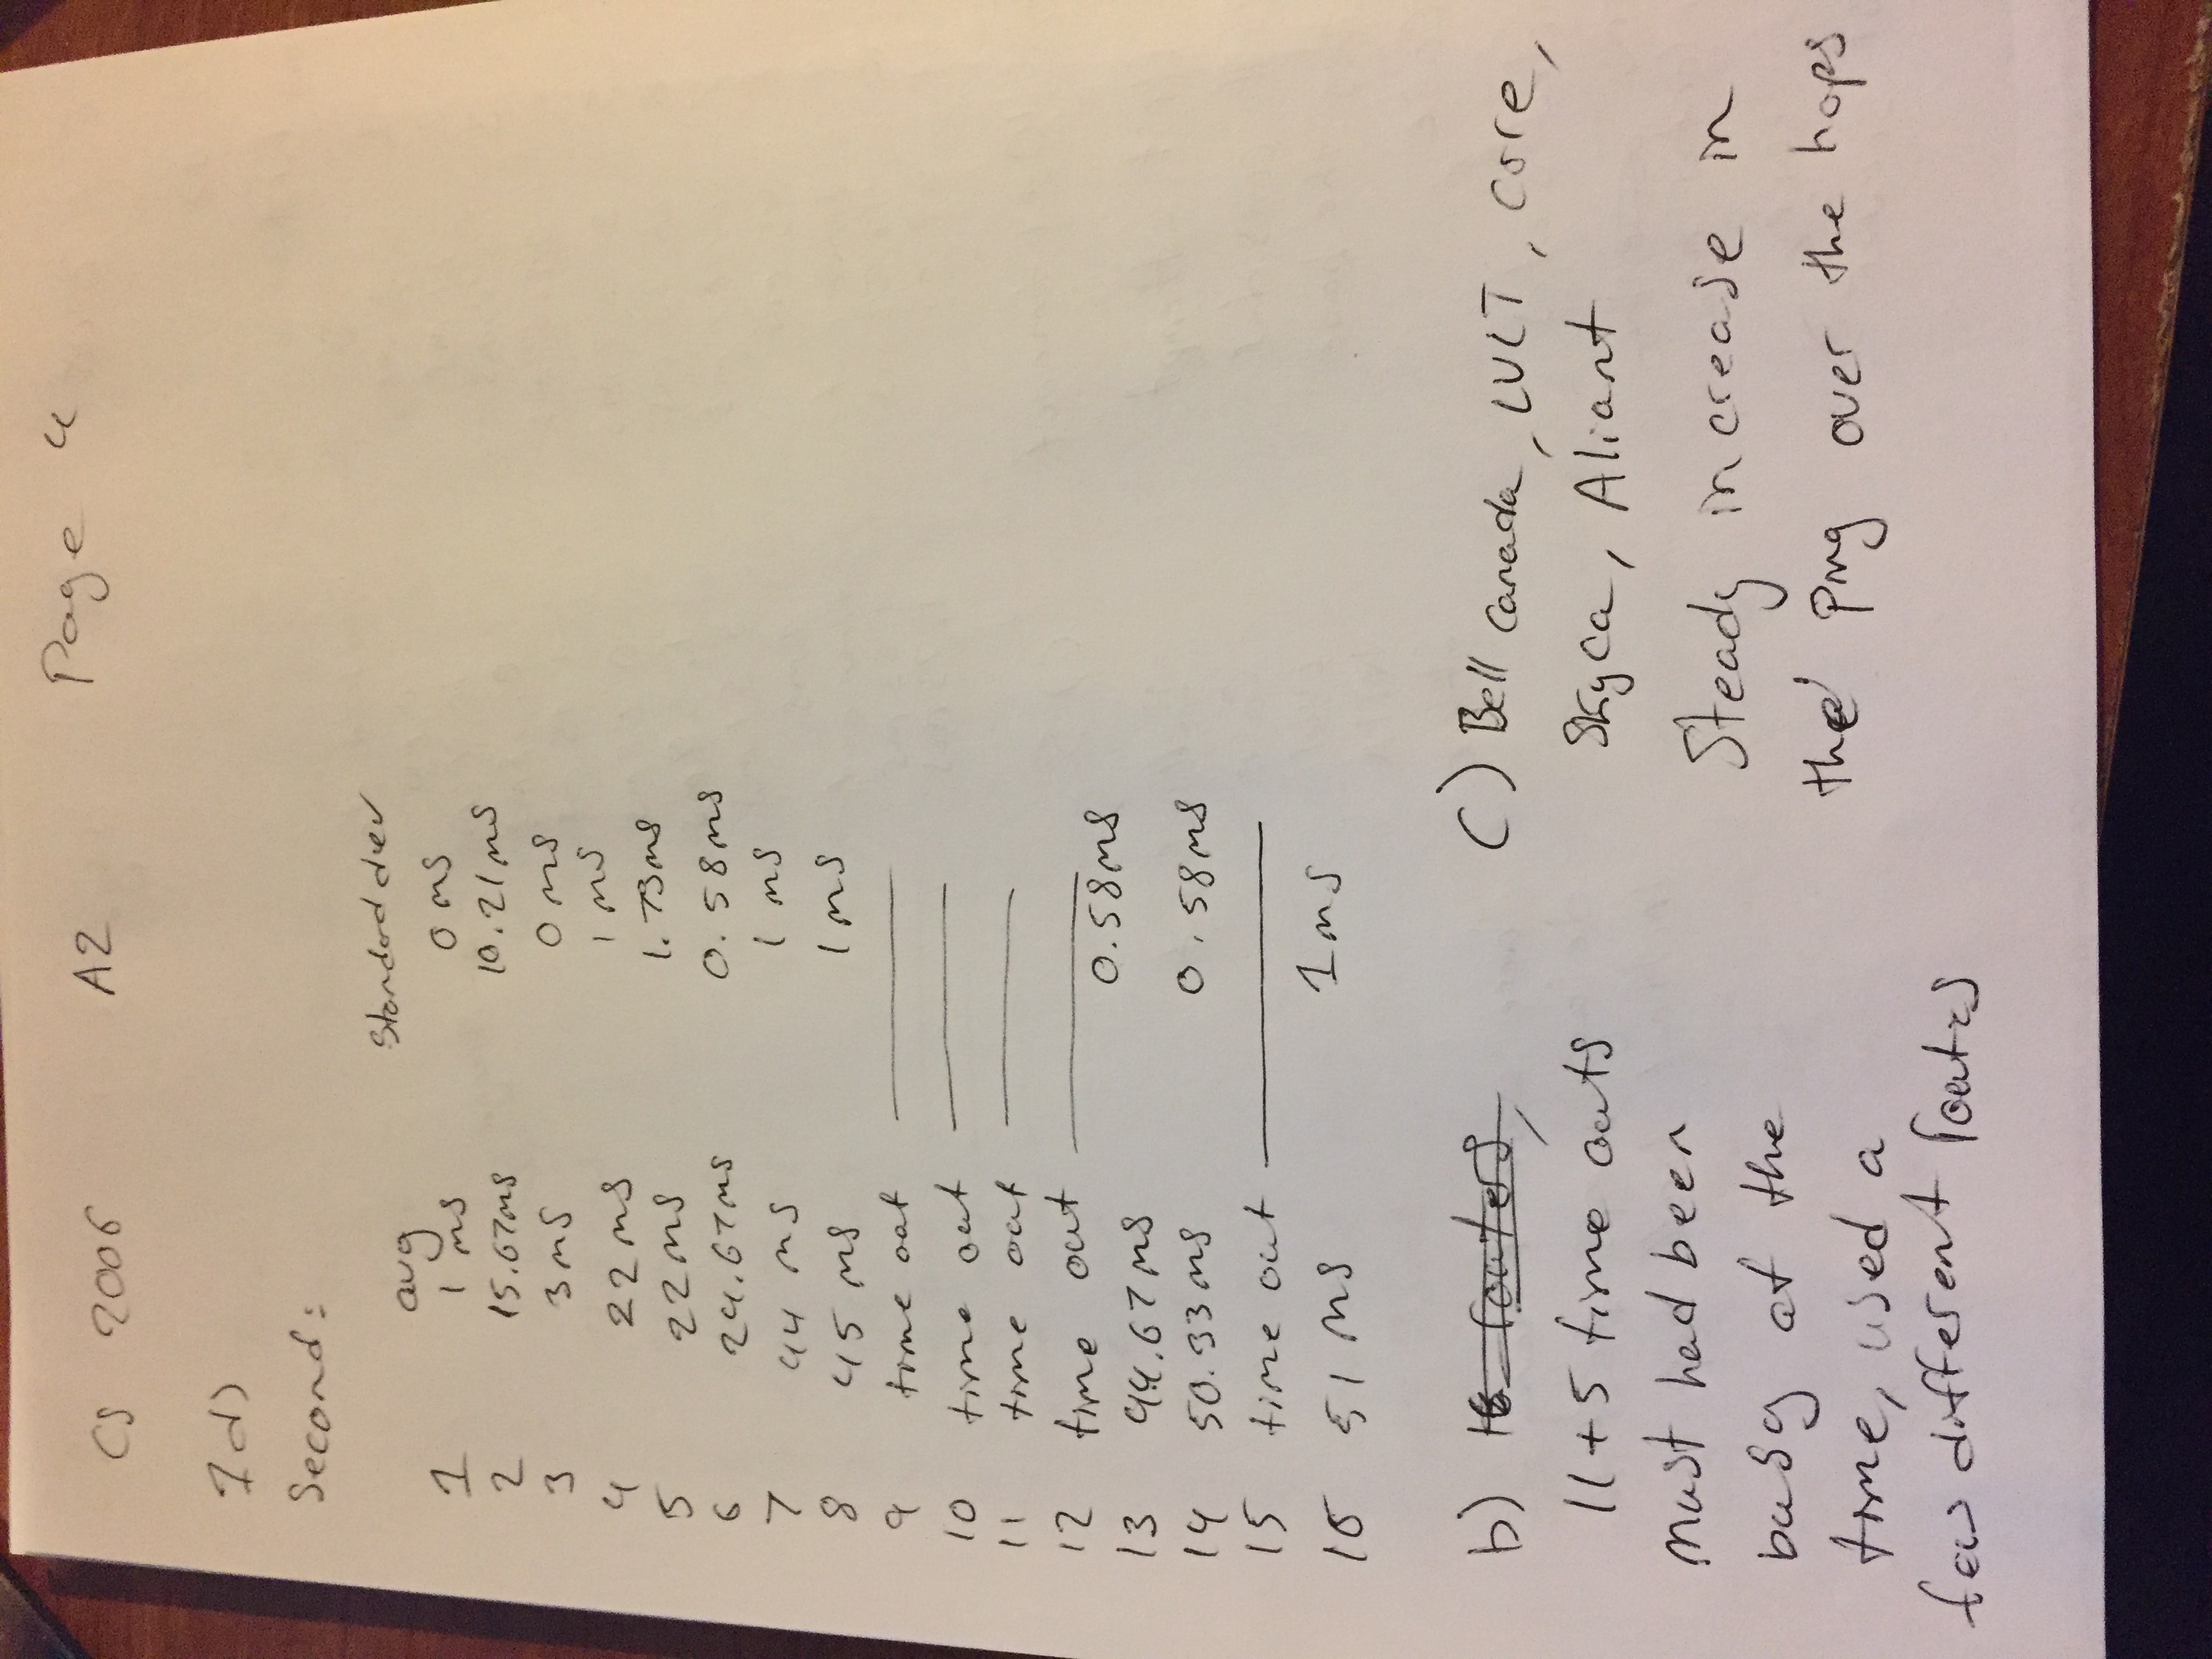 CS 2006 A2 Page 4
1d)
Second:
avg Standard dev
1 1 ms 0 ms
2 15.67ms 10.21ms
3 3ms 0 ms
4 22ms 1 ms
5 22ms 1.73ms
6 24.67ms 0.58ms
7 44 ms 1 ms
8 45 ms 1ms
9 time out
10 time out
11 time out
12 time out
13 44.67ms 0.58ms
14 50.33ms 0.58ms
15 time out
16 51 ms 1ms
b) 16 routers,
11+5 time outs
must had been
busy at the
time, used a
few different routes
C) Bell Canada, LVLT, core,
Skyca, Aliant
Steady increase in
the ping over the hops